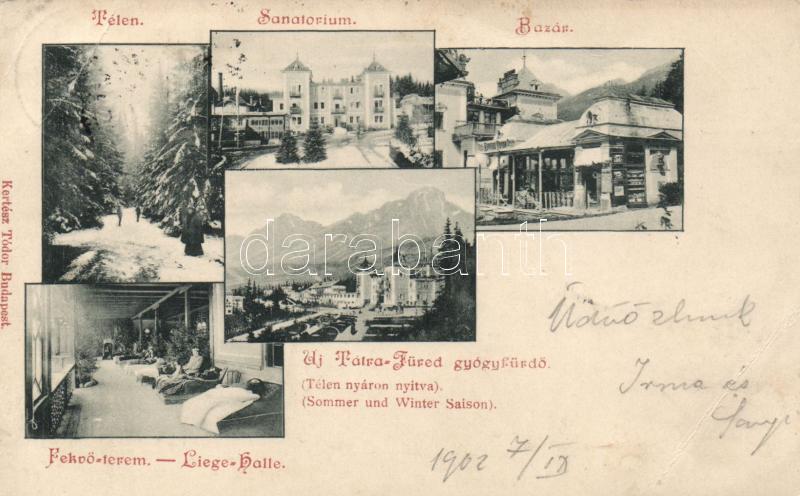 Télen.
Sanatorium.
Bazár.
Kertész Tódor Budapest.
darabanth.com
Uj Tátra-Füred gyógyfürdő.
(Télen nyáron nyitva).
(Sommer und Winter Saison).
Fekvő-terem. — Liege-Halle.
Üdvözlünk
Irma és
1902 7/IX